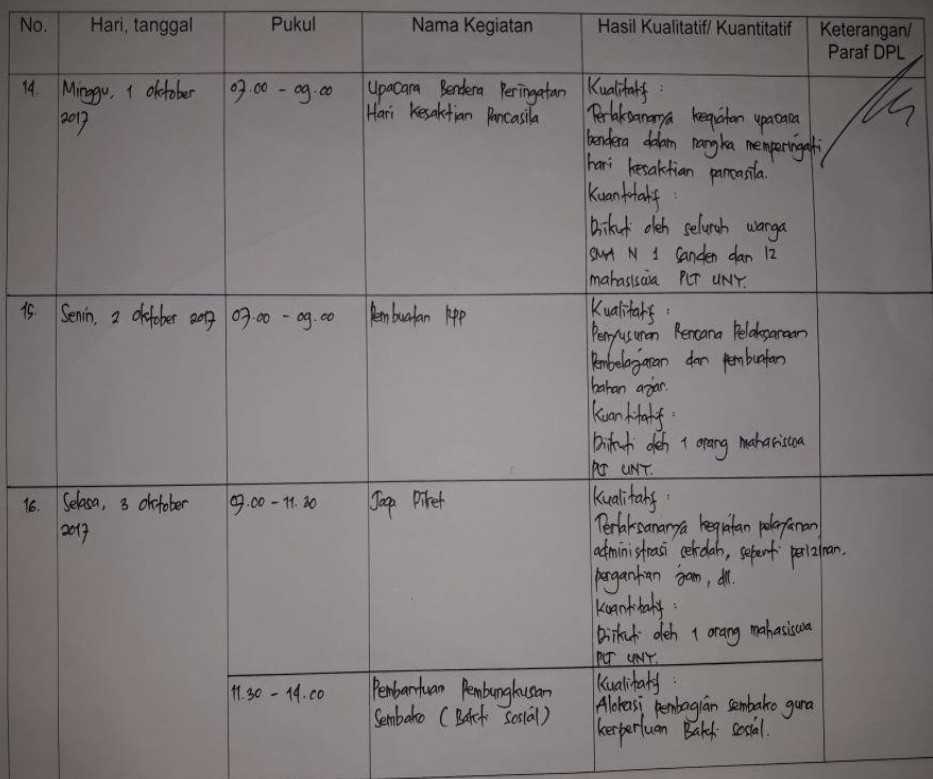 No. Hari, tanggal Pukul Nama Kegiatan Hasil Kualitatif/ Kuantitatif Keterangan/
Paraf DPL
14. Minggu, 1 Oktober 07.00 - 09.00 Upacara Bendera Peringatan Kualitatif :
2017 Hari Kesaktian Pancasila Terlaksananya kegiatan upacara
bendera dalam rangka memperingati
hari kesaktian pancasila.
Kuantitatif :
Diikuti oleh seluruh warga
SMA N 1 Sanden dan 12
mahasiswa PLT UNY.
15. Senin, 2 Oktober 2017 07.00 - 09.00 Pembuatan RPP Kualitatif :
Penyusunan Rencana Pelaksanaan
Pembelajaran dan pembuatan
bahan ajar.
Kuantitatif :
Diikuti oleh 1 orang mahasiswa
PLT UNY.
16. Selasa, 3 Oktober 07.00 - 11.30 Jaga Piket Kualitatif :
2017 Terlaksananya kegiatan pelayanan
administrasi sekolah, seperti perizinan,
pergantian jam, dll.
Kuantitatif :
Diikuti oleh 1 orang mahasiswa
PLT UNY.
11.30 - 14.00 Pembantuan Pembungkusan Kualitatif :
Sembako (Bakti Sosial) Alokasi pembagian sembako guna
kerperluan Bakti sosial.